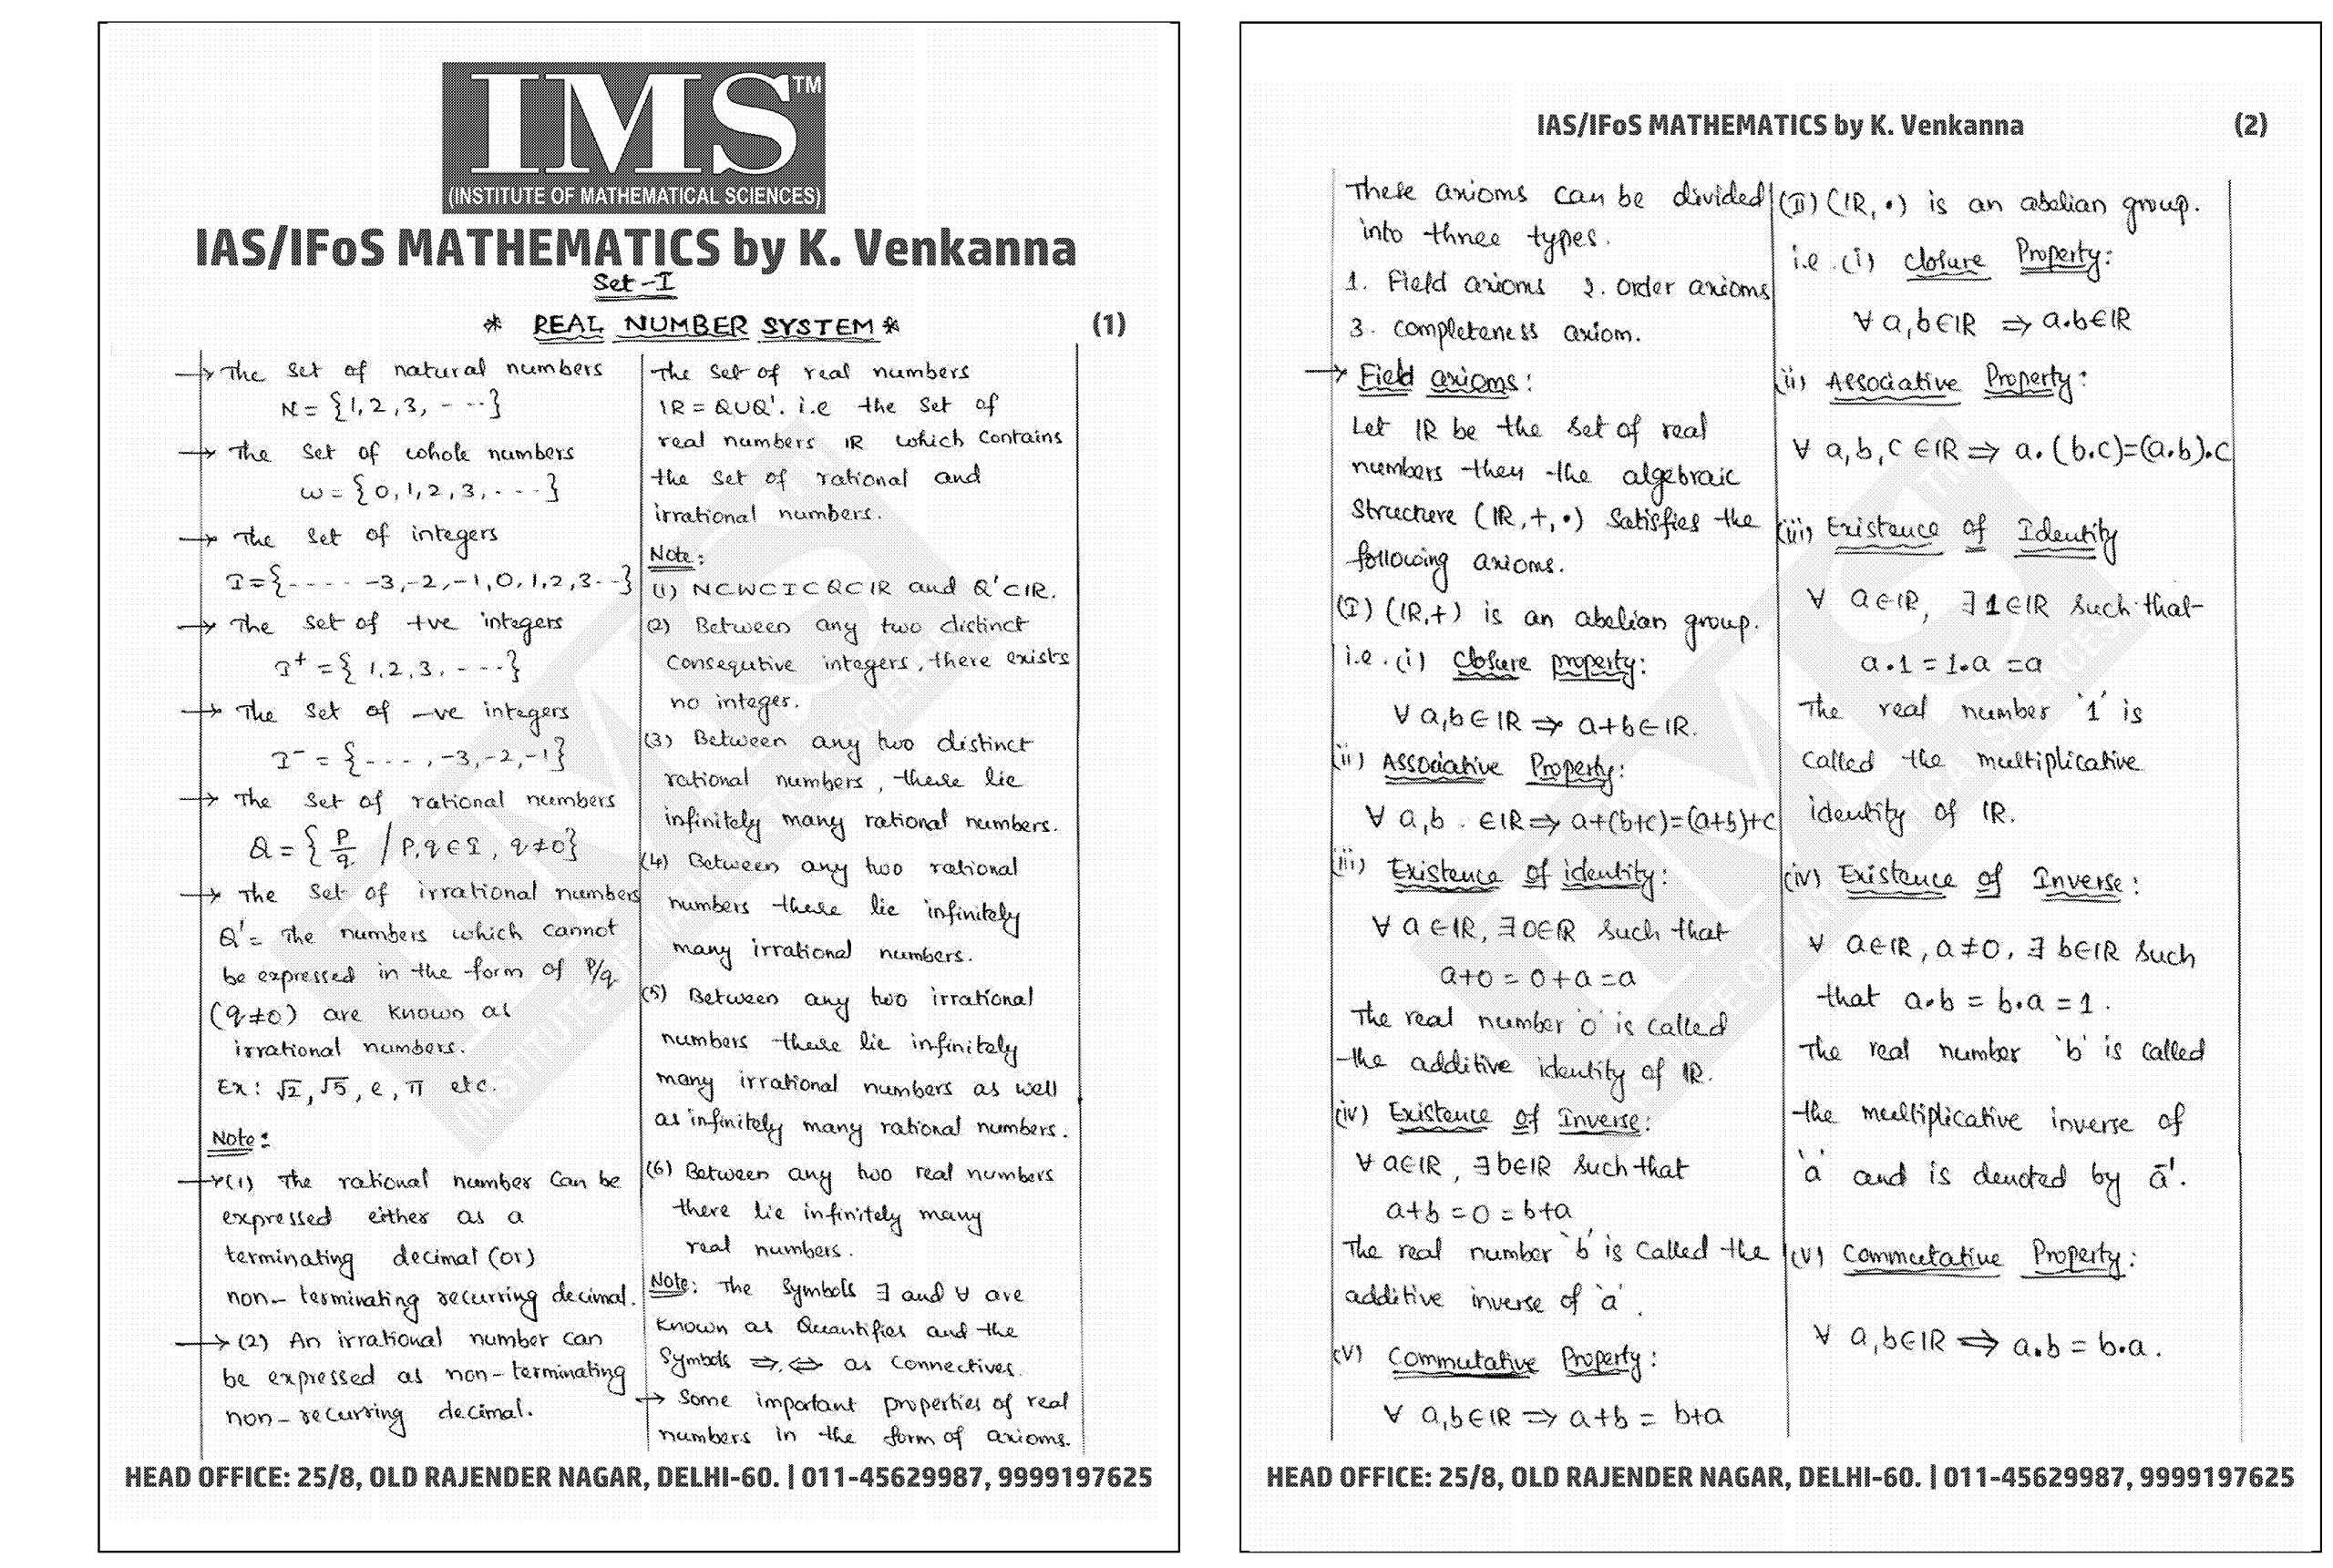 IMS™
(INSTITUTE OF MATHEMATICAL SCIENCES)
IAS/IFoS MATHEMATICS by K. Venkanna
Set-I
* REAL NUMBER SYSTEM *
(1)
→ The set of natural numbers
N = {1, 2, 3, - - -}
→ The set of whole numbers
W = {0, 1, 2, 3, - - -}
→ The set of integers
I = {- - - - -3, -2, -1, 0, 1, 2, 3 - -}
→ The set of +ve integers
I⁺ = {1, 2, 3, - - - -}
→ The set of -ve integers
I⁻ = {- - - -, -3, -2, -1}
→ The set of rational numbers
Q = {p/q / p, q ∈ I, q ≠ 0}
→ The set of irrational numbers
Q' = The numbers which cannot
be expressed in the form of p/q
(q ≠ 0) are known as
irrational numbers.
Ex: √2, √5, e, π etc.
Note:
→ (1) The rational number can be
expressed either as a
terminating decimal (or)
non-terminating recurring decimal.
→ (2) An irrational number can
be expressed as non-terminating
non-recurring decimal.
The set of real numbers
IR = Q∪Q'. i.e the set of
real numbers IR which contains
the set of rational and
irrational numbers.
Note:
(1) N⊂W⊂I⊂Q⊂IR and Q'⊂IR.
(2) Between any two distinct
consequtive integers, there exists
no integer.
(3) Between any two distinct
rational numbers, these lie
infinitely many rational numbers.
(4) Between any two rational
numbers these lie infinitely
many irrational numbers.
(5) Between any two irrational
numbers these lie infinitely
many irrational numbers as well
as infinitely many rational numbers.
(6) Between any two real numbers
there lie infinitely many
real numbers.
Note: The symbols ∃ and ∀ are
known as Quantifies and the
Symbols ⇒, ⇔ as connectives.
→ Some important properties of real
numbers in the form of axioms.
HEAD OFFICE: 25/8, OLD RAJENDER NAGAR, DELHI-60. | 011-45629987, 9999197625
IAS/IFoS MATHEMATICS by K. Venkanna
(2)
These axioms can be divided
into three types.
1. Field axioms 2. Order axioms
3. Completeness axiom.
→ Field axioms:
Let IR be the set of real
numbers then the algebraic
Structure (IR, +, •) satisfies the
following axioms.
(I) (IR, +) is an abelian group.
i.e. (i) Closure property:
∀ a, b ∈ IR ⇒ a+b ∈ IR.
(ii) Associative Property:
∀ a, b . ∈ IR ⇒ a+(b+c)=(a+b)+c
(iii) Existence of identity:
∀ a ∈ IR, ∃ 0 ∈ IR such that
a+0 = 0+a = a
The real number '0' is called
the additive identity of IR.
(iv) Existence of Inverse:
∀ a ∈ IR, ∃ b ∈ IR such that
a+b = 0 = b+a
The real number 'b' is called the
additive inverse of 'a'.
(v) Commutative Property:
∀ a, b ∈ IR ⇒ a+b = b+a
(II) (IR, •) is an abelian group.
i.e. (i) Closure Property:
∀ a, b ∈ IR ⇒ a•b ∈ IR
(ii) Associative Property:
∀ a, b, c ∈ IR ⇒ a•(b•c)=(a•b)•c
(iii) Existence of Identity
∀ a ∈ IR, ∃ 1 ∈ IR such that
a•1 = 1•a = a
The real number '1' is
called the multiplicative
identity of IR.
(iv) Existence of Inverse:
∀ a ∈ IR, a ≠ 0, ∃ b ∈ IR such
that a•b = b•a = 1.
The real number 'b' is called
the multiplicative inverse of
'a' and is denoted by a⁻¹.
(v) Commutative Property:
∀ a, b ∈ IR ⇒ a•b = b•a.
HEAD OFFICE: 25/8, OLD RAJENDER NAGAR, DELHI-60. | 011-45629987, 9999197625